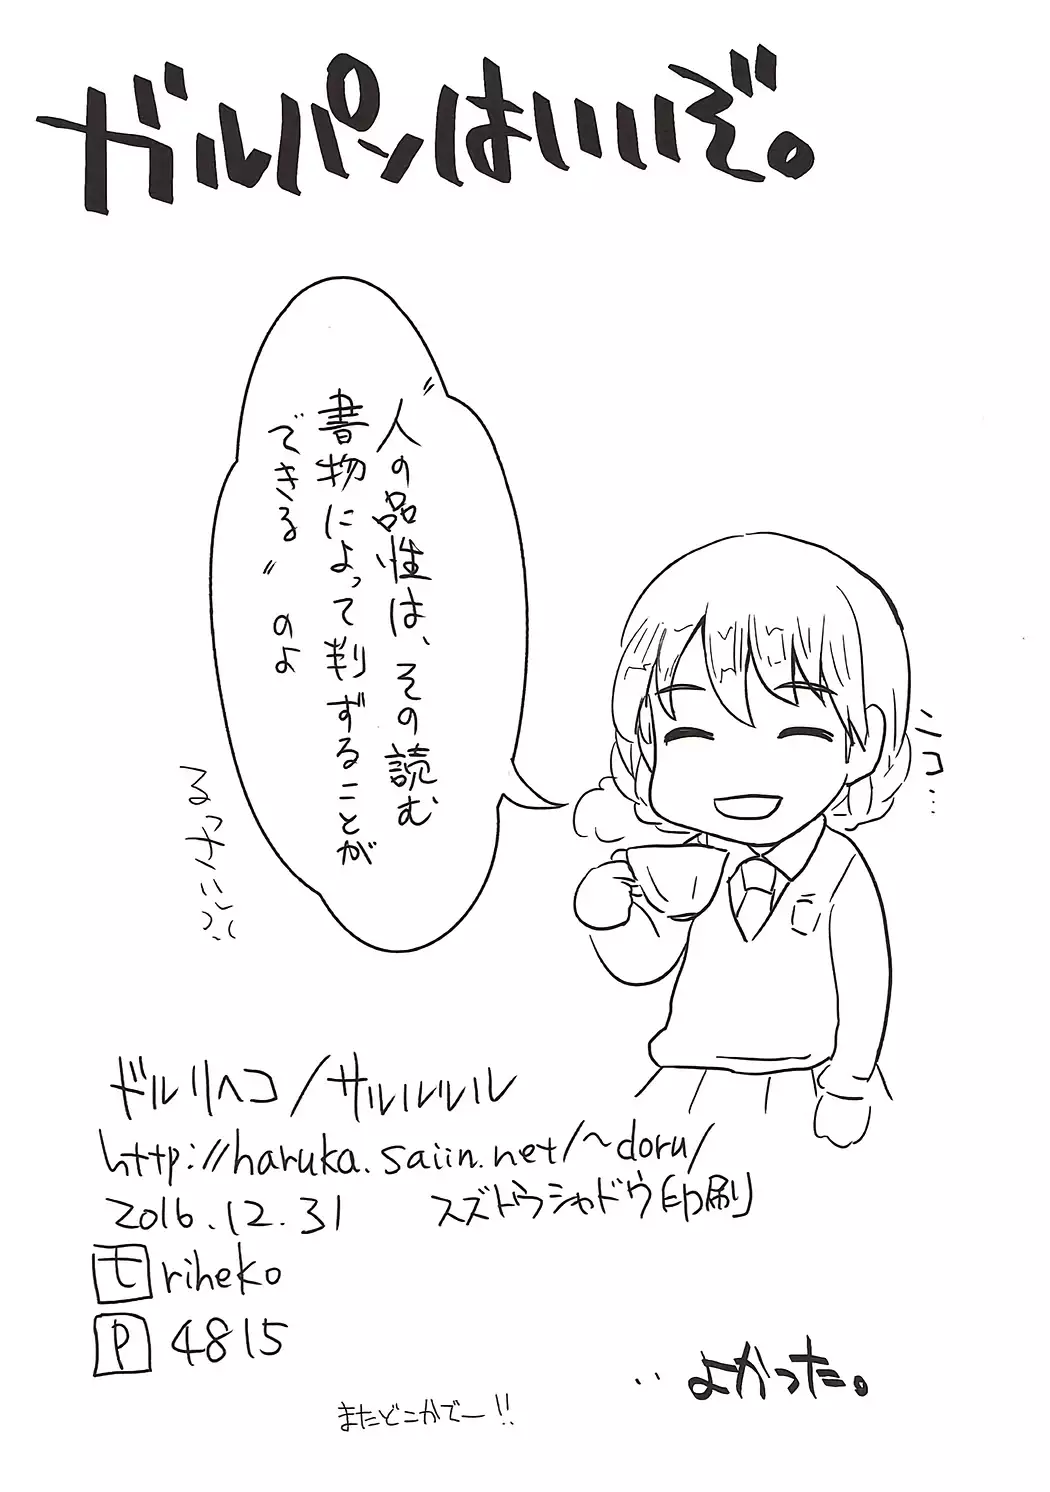 ガルパンはいいぞ。
〝人の品性は、その読む
書物によって判ずることが
できる〟のよ
ニコ…
るっさいっ
ドルリヘコ/サルルルル
http://haruka.saiin.net/~doru/
2016.12.31 スズトウシャドウ印刷
モ riheko
P 4815
‥よかった。
またどこかでー!!